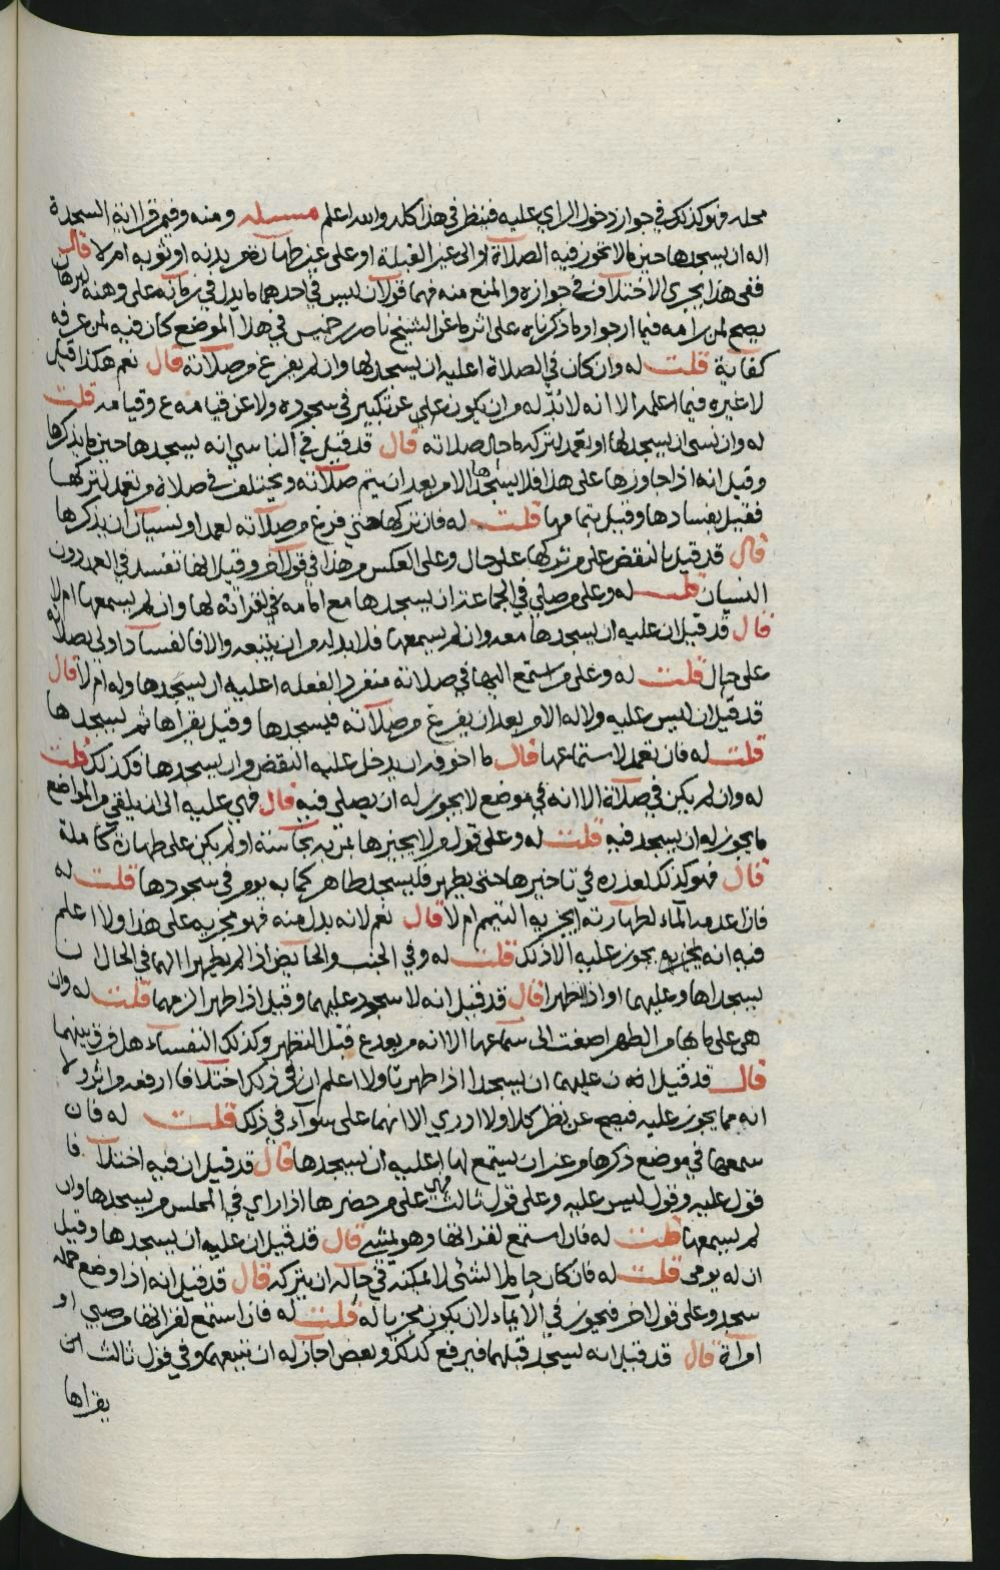 محله فهو كذلك في جواز دخول الراي عليه فينظر في هذا كله والله اعلم مسئلة ومنه وفيمن قرا اية السجدة
اله ان يسجدها حين ما لا تجوز فيه الصلاة او الى غير القبلة او على غير طهارة في بدنه او ثوبه ام لا قال
ففي هذا يجري الاختلاف في جوازه والمنع منه فهما قولان ليس في احدهما ما يدل في على وهنه لبرهان
يصح لمن رامه فيما ارجو او ما ذكرناه على اثر ما عن الشيخ ناصر بن خميس في هذا الموضع كان فيه لمن عرفه
كفاية قلت له وان كان في الصلاة اعليه ان يسجد لها وان لم يفرغ من صلاته قال نعم هكذا قيل
لا غيره فيما اعلمه الا انه لا بد له من ان يكون على عن تكبير في سجوده ولا عن قيامه ع وقيامه قلت
له وان نسي ان يسجد لها او تعمد لتركه ما حال صلاته قال قد قيل في الناسي انه يسجدها حين ما يذكرها
وقيل انه اذا جاوزها على هذا فلا يسجدها الا من بعد ان يتم صلاته ويختلف في صلاة من تعمد لتركها
فقيل بفسادها وقيل بتمامها قلت له فان تركها حتى فرغ من صلاته لعمد او لنسيان ان يذكرها
قال قد قيل بالنقض على من تركها على حال وعلى العكس من هذا في قول اخر وقيل انها تفسد في العمد دون
النسيان قلت له وعلى من صلى في الجماعة ان يسجدها مع امامه في قرأته لها وان لم يسمعها ام لا
قال قد قيل ان عليه ان يسجدها معه وان لم يسمعها فلا بد له من ان يتبعه والا فالفساد اولى بصلاته
على حال قلت له وعلى من استمع اليها في صلاته منفرد الفعله اعليه ان يسجدها وله ام لا قال
قد قيل ان ليس عليه ولا له الا من بعد ان يفرغ من صلاته فيسجدها وقيل يقرأها ثم يسجدها
قلت له فان تعمد لاستماعها قال ما اخوفه ان يدخل عليه النقض وان سجدها فكذلك قلت
له وان لم يكن في صلاة الا انه في موضع لا يجوز له ان يصلي فيه قال فهي عليه الى ان يلقى من المواضع
ما يجوز له ان يسجد فيه قلت له وعلى قول من لا يجيزها لمن به نجاسة او لم يكن على طهارة كاملة
قال فهو كذلك لعذره في تاخيرها حتى يطهر فليسجد طاهر كما به يومر في سجودها قلت له
فان اعدمه الماء لطهارته ايجزيه التيمم ام لا قال نعم لانه بدل منه فهو مجزيه على هذا ولا اعلم
فيه انه يجوز عليه الا ذلك قلت له وفي الجنب والحائض اذا لم يطهرا الهما في الحال ان
يسجداها وعليهما او اذا طهرا قال قد قيل انه لا سجود عليهما وقيل اذا طهرا الزمهما قلت له وان
هي على ما بها من الطهر اصغت الى سماعها الا انه من بعد ع قبل التطهر وكذلك النفساء هل فرق بينهما
قال قد قيل انه ن عليهما ان يسجدا اذا طهرتا ولا اعلم ان في ذلك اختلافا ارفعه واثره لا
انه مما يجوز عليه فيصح عن نظر كلا ولا ادري الا انهما على سواء في ذلك قلت له فان
سمعها في موضع ذكرها من غير ان يستمع لها اعليه ان يسجدها قال قد قيل ان فيه اختلافا
قول عليه وقول ليس عليه وعلى قول ثالث فهي على من حضرها اذا راي في المجلس من يسجدها وان
لم يسمعها قلت له فان استمع لقرانها وهو يمشي قال قد قيل ان عليه ان يسجدها وقيل
ان له يومي قلت له فان كان حاملا لشئ لا يمكنه في حاله ان يتركه قال قد قيل انه اذا وضع حمله
سجد وعلى قول اخر فيجوز في الايماء لان يكون مجزيا له قلت له فان استمع لقرانها من صبي او
امرأة قال قد قيل انه يسجد قبلهما فيرفع كذلك وبعض اجاز له ان يتبعهما وفي قول ثالث ان
يقراها